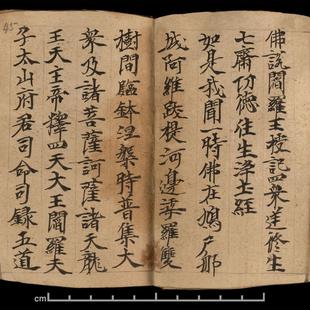 佛說閻羅王授記四衆逆修生
七齋功德往生淨土經
如是我聞一時佛在鳩尸那
城阿維跋提河邊娑羅雙
樹間臨鉢涅槃時普集大
衆及諸菩薩訶薩諸天龍
王天主帝釋四天大王閻羅天
子太山府君司命司録五道
45
cm